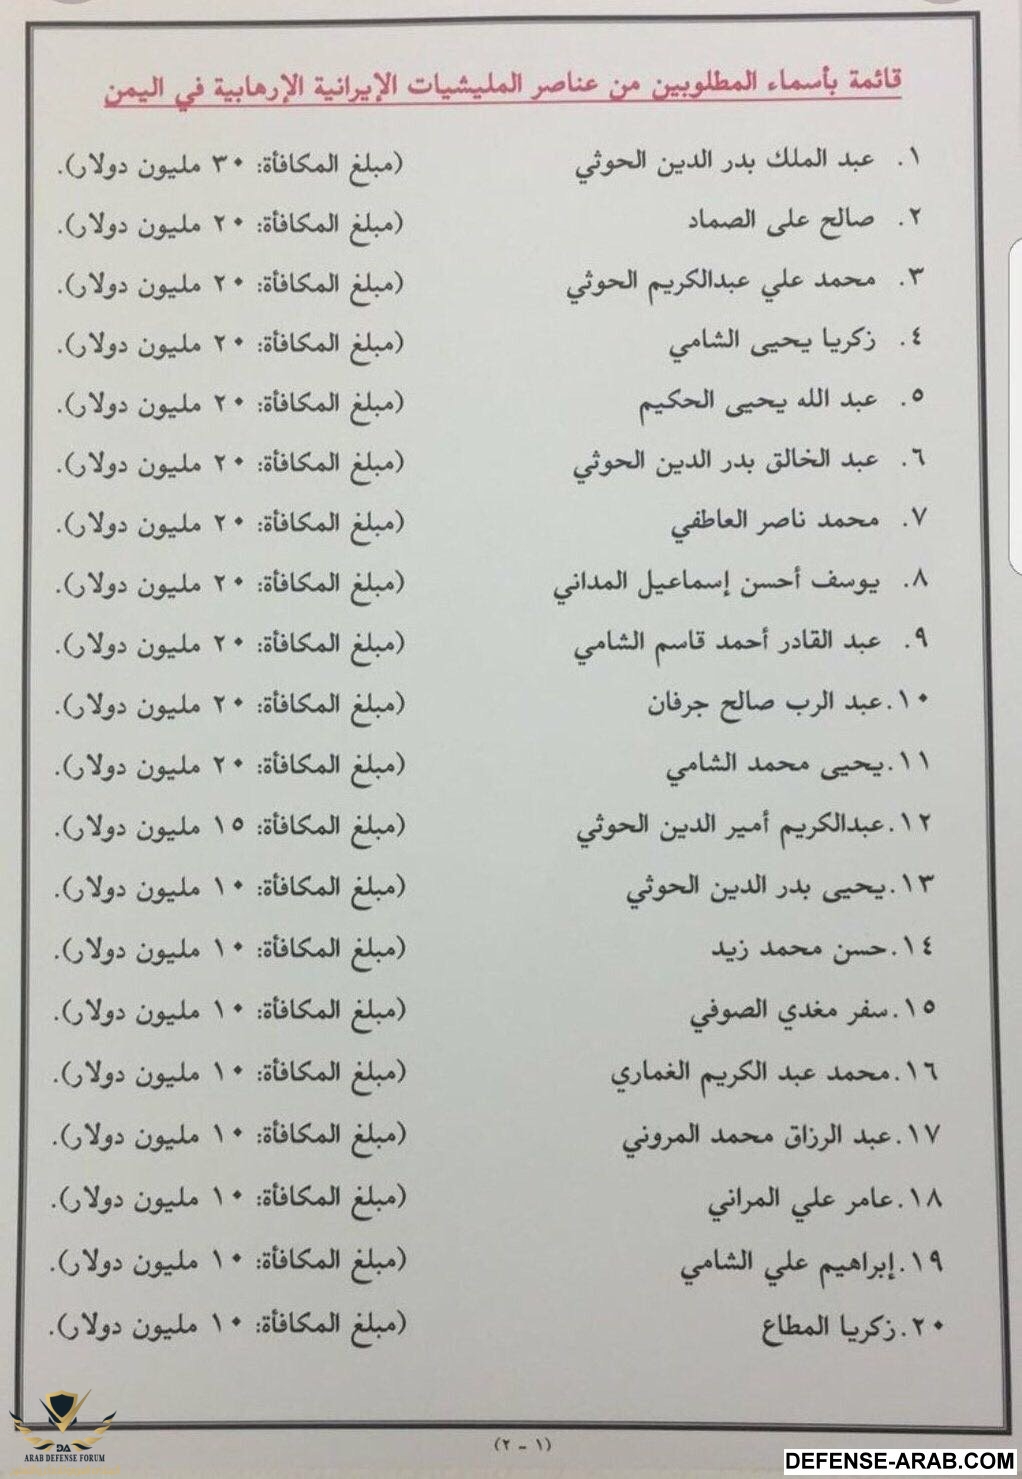 قائمة بأسماء المطلوبين من عناصر المليشيات الإيرانية الإرهابية في اليمن
١. عبد الملك بدر الدين الحوثي (مبلغ المكافأة: ٣٠ مليون دولار).
٢. صالح على الصماد (مبلغ المكافأة: ٢٠ مليون دولار).
٣. محمد علي عبدالكريم الحوثي (مبلغ المكافأة: ٢٠ مليون دولار).
٤. زكريا يحيى الشامي (مبلغ المكافأة: ٢٠ مليون دولار).
٥. عبد الله يحيى الحكيم (مبلغ المكافأة: ٢٠ مليون دولار).
٦. عبد الخالق بدر الدين الحوثي (مبلغ المكافأة: ٢٠ مليون دولار).
٧. محمد ناصر العاطفي (مبلغ المكافأة: ٢٠ مليون دولار).
٨. يوسف أحسن إسماعيل المداني (مبلغ المكافأة: ٢٠ مليون دولار).
٩. عبد القادر أحمد قاسم الشامي (مبلغ المكافأة: ٢٠ مليون دولار).
١٠.عبد الرب صالح جرفان (مبلغ المكافأة: ٢٠ مليون دولار).
١١.يحيى محمد الشامي (مبلغ المكافأة: ٢٠ مليون دولار).
١٢.عبدالكريم أمير الدين الحوثي (مبلغ المكافأة: ١٥ مليون دولار).
١٣.يحيى بدر الدين الحوثي (مبلغ المكافأة: ١٠ مليون دولار).
١٤.حسن محمد زيد (مبلغ المكافأة: ١٠ مليون دولار).
١٥.سفر مغدي الصوفي (مبلغ المكافأة: ١٠ مليون دولار).
١٦.محمد عبد الكريم الغماري (مبلغ المكافأة: ١٠ مليون دولار).
١٧.عبد الرزاق محمد المروني (مبلغ المكافأة: ١٠ مليون دولار).
١٨.عامر علي المراني (مبلغ المكافأة: ١٠ مليون دولار).
١٩.إبراهيم علي الشامي (مبلغ المكافأة: ١٠ مليون دولار).
٢٠.زكريا المطاع (مبلغ المكافأة: ١٠ مليون دولار).
(١ - ٢)
DA
ARAB DEFENSE FORUM
DEFENSE-ARAB.COM